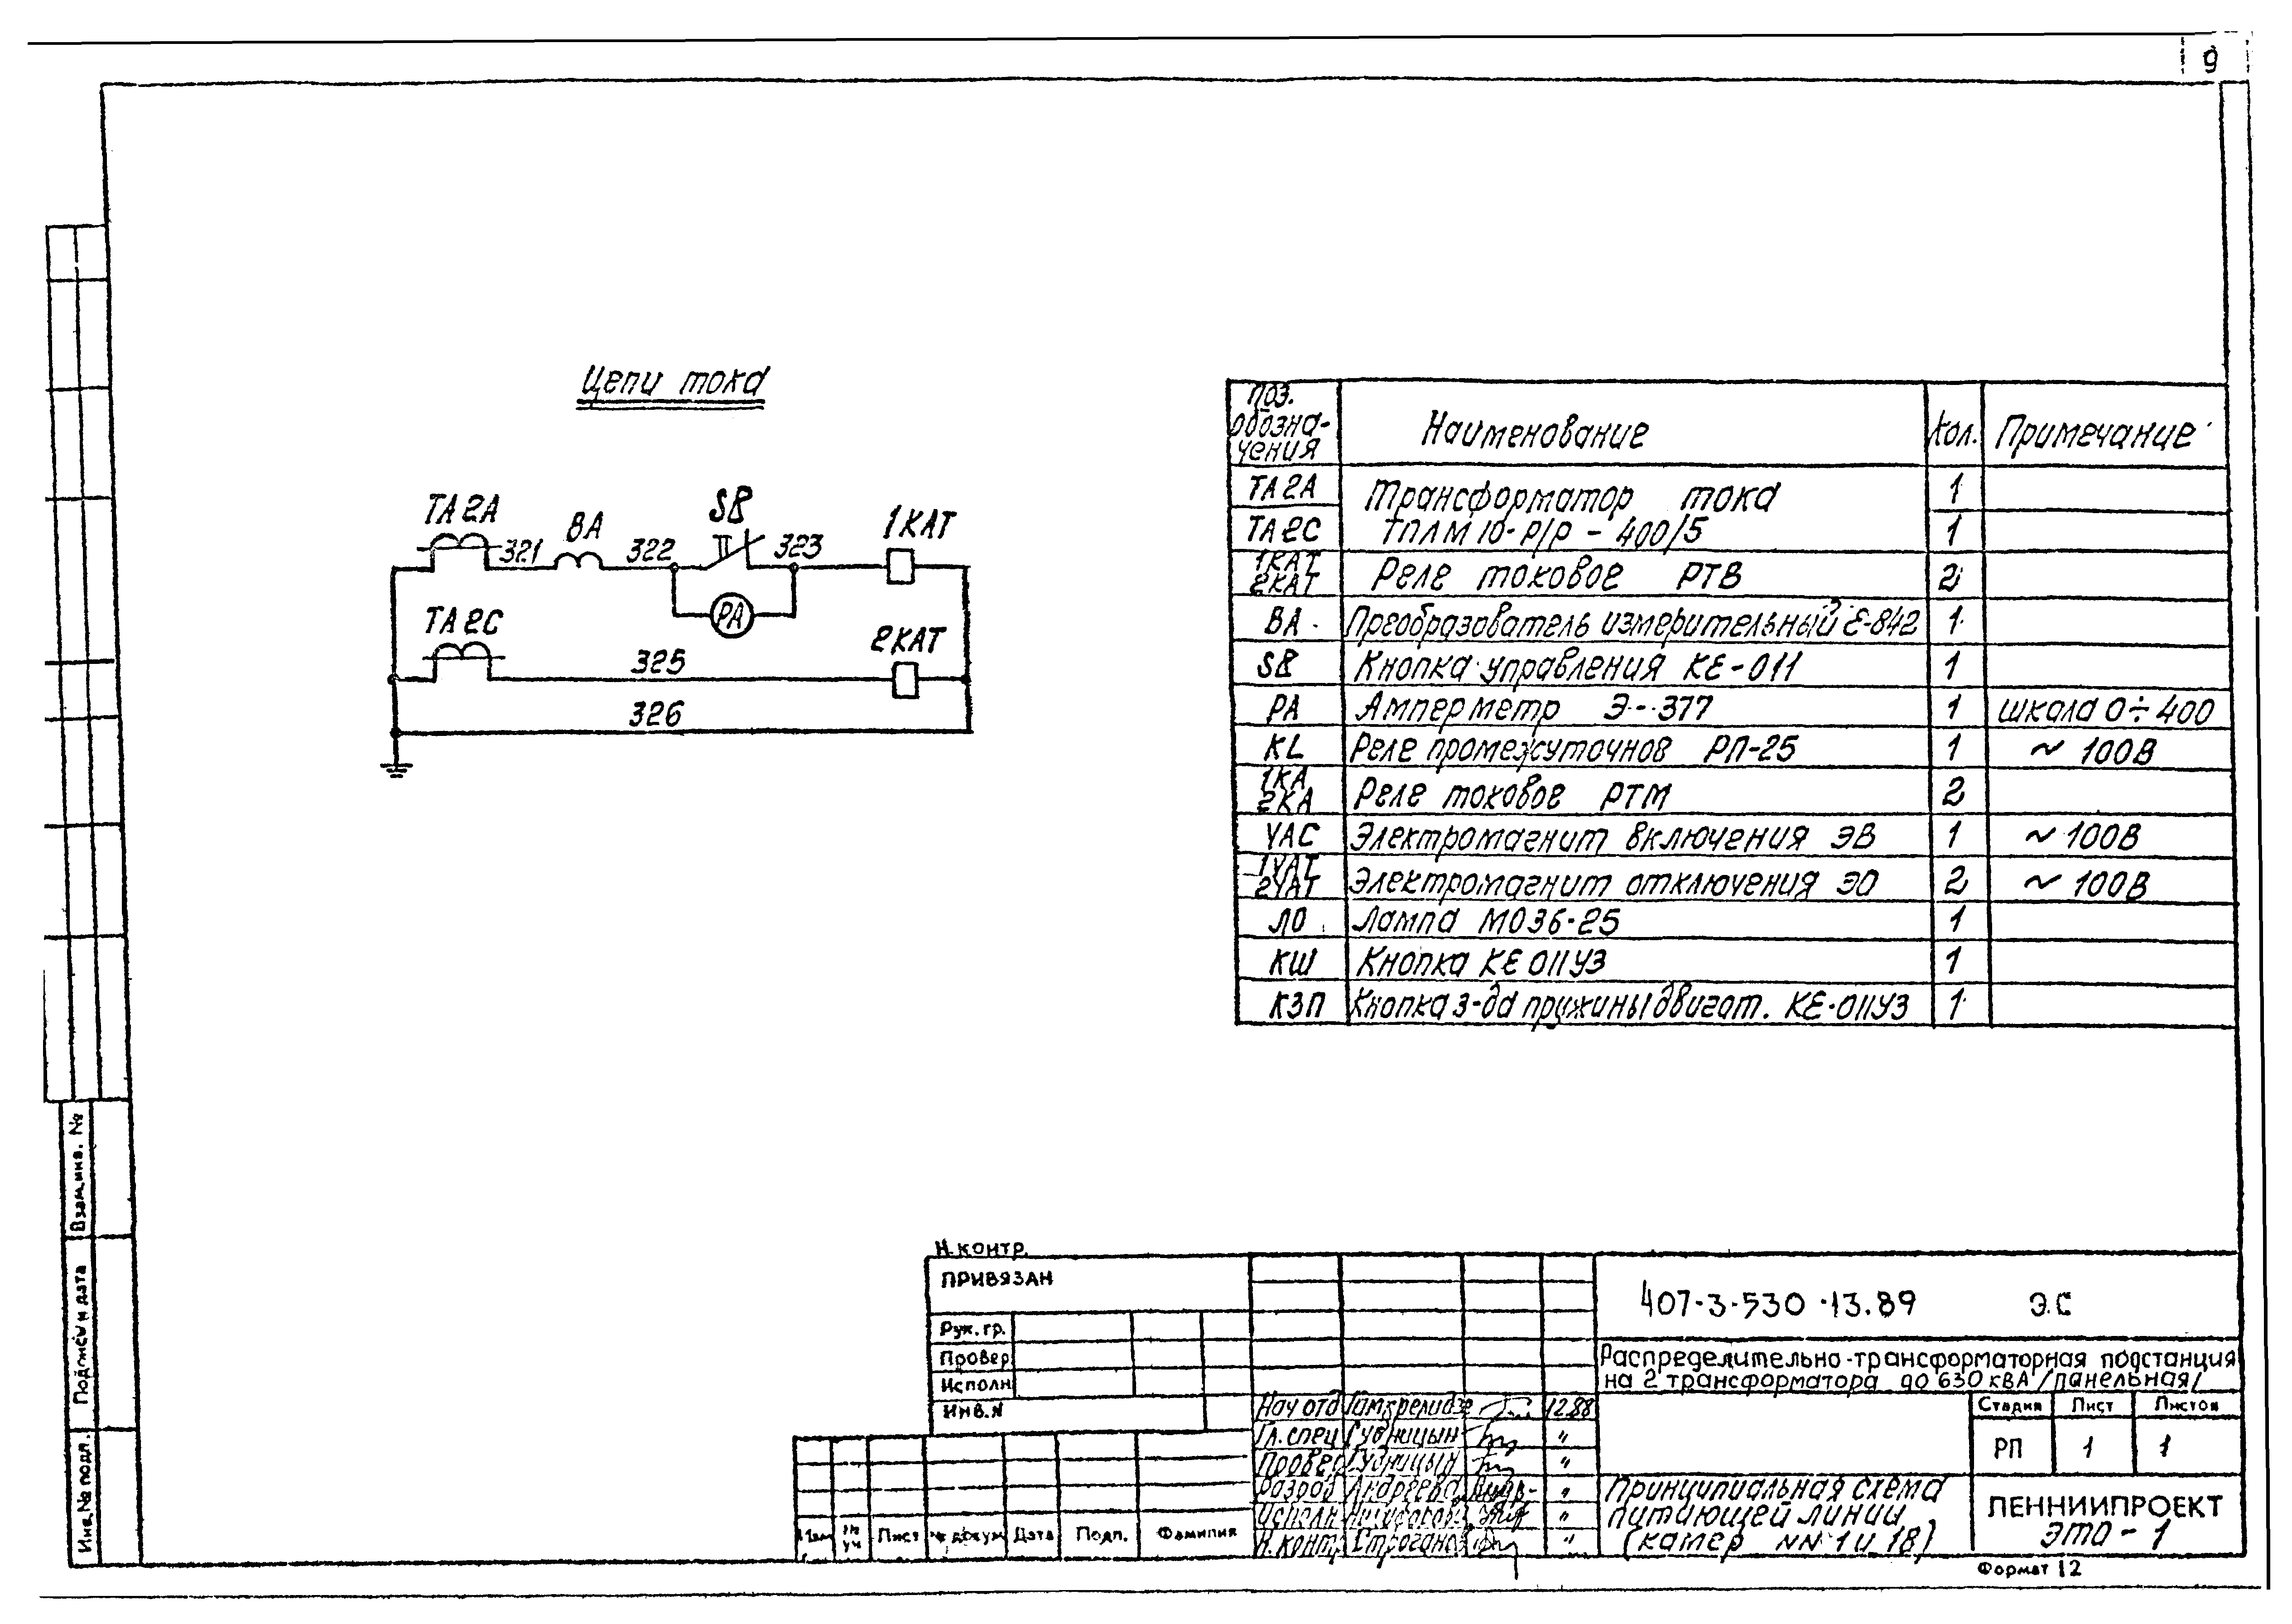 9
Цепи тока
ТА2А
321
ВА
322
SB
323
1КАТ
РА
ТА2С
325
2КАТ
326
Поз. обозна-чения
Наименование
Кол.
Примечание
ТА2А
Трансформатор тока
1
ТА2С
ТПЛМ10-Р/Р - 400/5
1
1КАТ
2КАТ
Реле токовое РТВ
2
ВА
Преобразователь измерительный Е-842
1
SB
Кнопка управления КЕ-011
1
РА
Амперметр Э-377
1
шкала 0÷400
KL
Реле промежуточнов РП-25
1
~ 100В
1КА
2КА
Реле токовое РТМ
2
YAC
Электромагнит включения ЭВ
1
~ 100В
1YAT
2YAT
Электромагнит отключения ЭО
2
~ 100В
ЛО
Лампа МО36-25
1
КШ
Кнопка КЕ011У3
1
КЗП
Кнопка з-да пружины двигат. КЕ-011У3
1
Н.контр.
ПРИВЯЗАН
Рук.гр.
Провер
Исполн
Инв.N
Лист
№ докум
Дата
Подп.
Фамилия
Нач отд Гамкрелидзе 12.88
Гл.спец Губницын "
Провер Губницын "
Разраб Андреева "
Исполн "
Н.контр. Строганов "
407-3-530.13.89 Э.С
Распределительно-трансформаторная подстанция
на 2 трансформатора до 630 кВА /панельная/
Стадия
Лист
Листов
РП
1
1
Принципиальная схема
питающей линии
(камер NN 1 и 18)
ЛЕННИИПРОЕКТ
ЭТО-1
Формат 12
Взам.инв. №
Подпись и дата
Инв.№ подл.